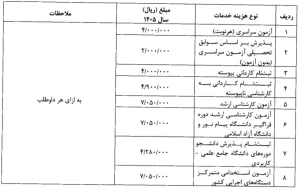 ردیف نوع هزینه خدمات مبلغ (ریال) سال ۱۴۰۵ ملاحظات
۱ آزمون سراسری (هر نوبت) ۴/۰۰۰/۰۰۰
۲ پذیرش بر اساس سوابق تحصیلی آزمون سراسری (بدون آزمون) ۲/۰۰۰/۰۰۰
۳ ثبت‌نام کاردانی پیوسته ۴/۰۰۰/۰۰۰
۴ ثبت‌نام کاردانی به کارشناسی ناپیوسته ۴/۹۰۰/۰۰۰
۵ آزمون کارشناسی ارشد ۷/۰۵۰/۰۰۰
۶ آزمون کارشناسی ارشد دوره فراگیر دانشگاه پیام نور و دانشگاه آزاد اسلامی ۷/۰۵۰/۰۰۰
۷ ثبت‌نام پذیرش دانشجو دوره‌های دانشگاه جامع علمی - کاربردی ۴/۳۸۰/۰۰۰
۸ آزمون استخدامی متمرکز دستگاه‌های اجرایی کشور ۷/۰۵۰/۰۰۰
به ازای هر داوطلب